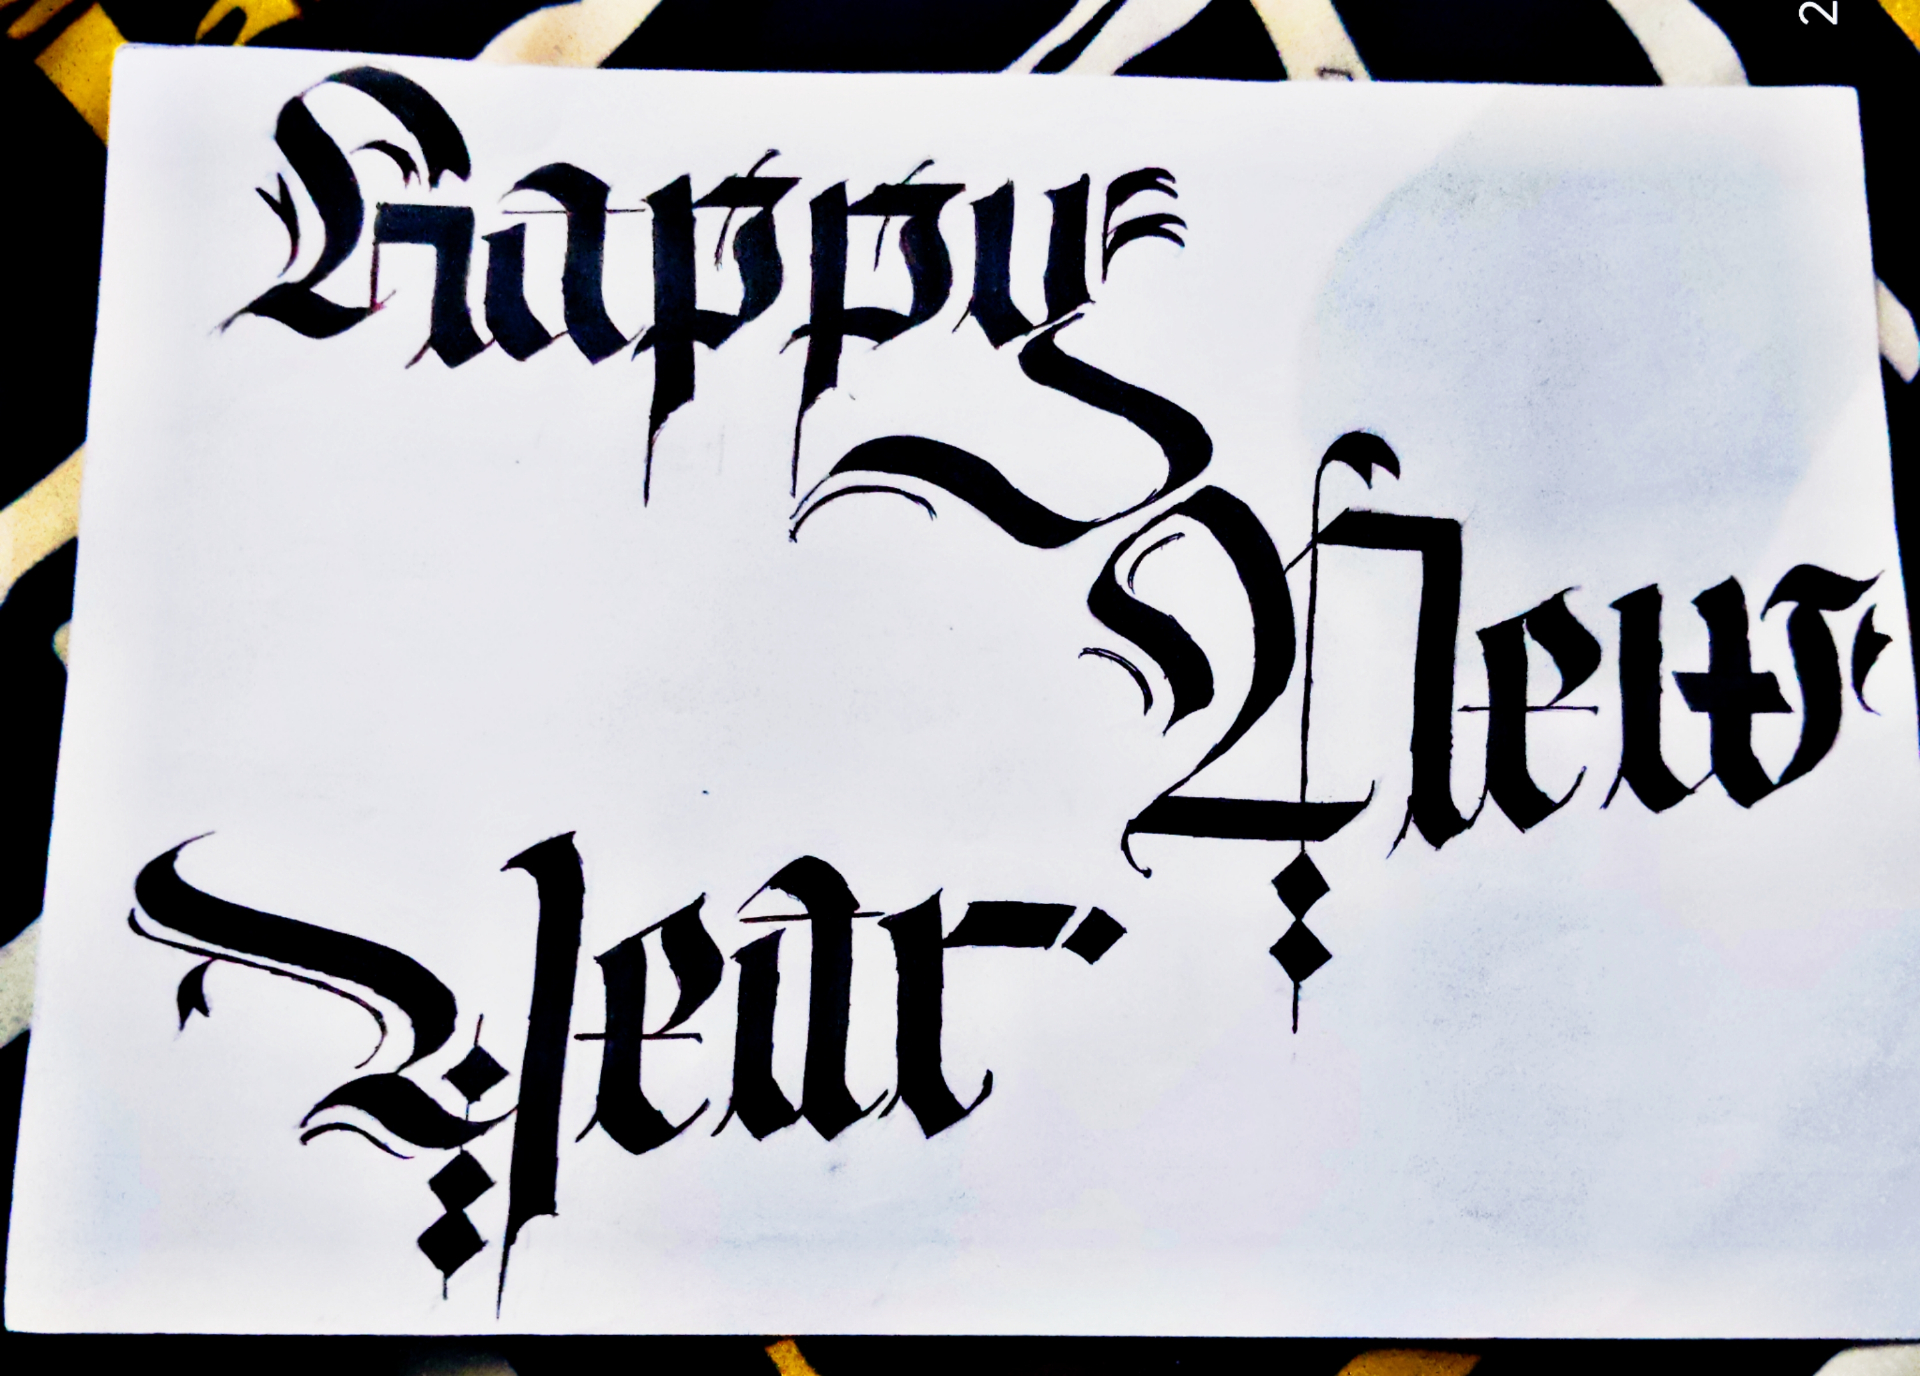 Happy
New
Year
2